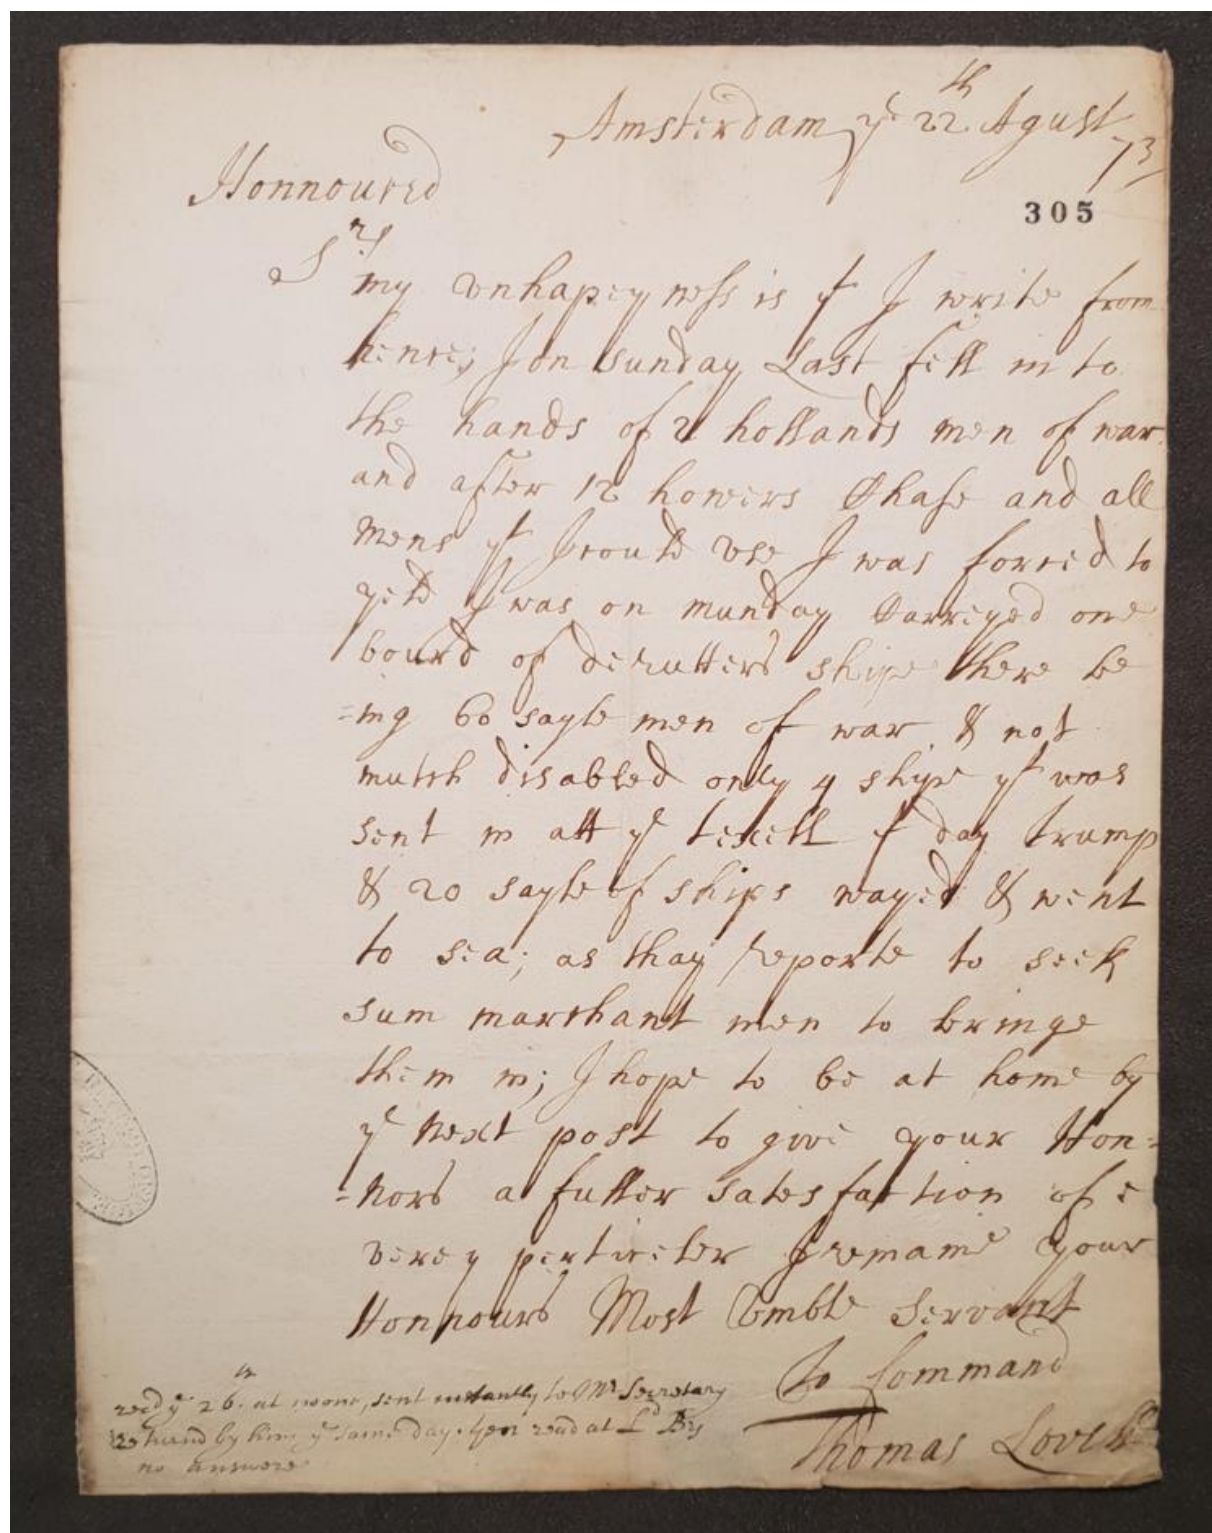 Amsterdam ye 22th Agust
73
Honnoured
305
Srs
my vnhapeyness is yt I write from
hence; I on sunday Last fell in to
the hands of 2 hollands men of war
and after 12 howers Chase and all
mens yt I could vse I was forced to
yeld I was on munday Carreyed one
bourd of deruttters shipe there be
=ing 60 sayle men of war & not
mutch disabled only 4 shipe yt was
sent in att ye texell yt day trump
& 20 sayle of ships wayed & went
to sea; as thay reporte to seek
sum marchant men to bringe
them in; I hope to be at home by
ye next post to give your Hon=
=nors a fuller satesfaction of e
verey perticeler I remaine your
Honnours Most Comble Servant
To Command
Thomas
recd ye 26th at noone, sent instantly to Mr Secretary
returnd by him ye same day. then read at Ld
no answere